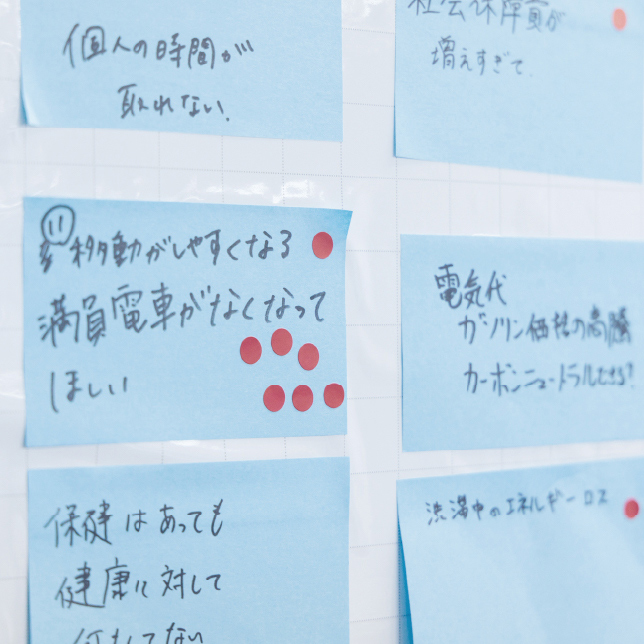 個人の時間が
取れない.
社会保障費が
増えすぎて.
11
移動がしやすくなる
満員電車がなくなって
ほしい
電気代
ガソリン価格の高騰
カーボンニュートラルできる?
保健はあっても
健康に対して
何もしてない
渋滞中のエネルギーロス